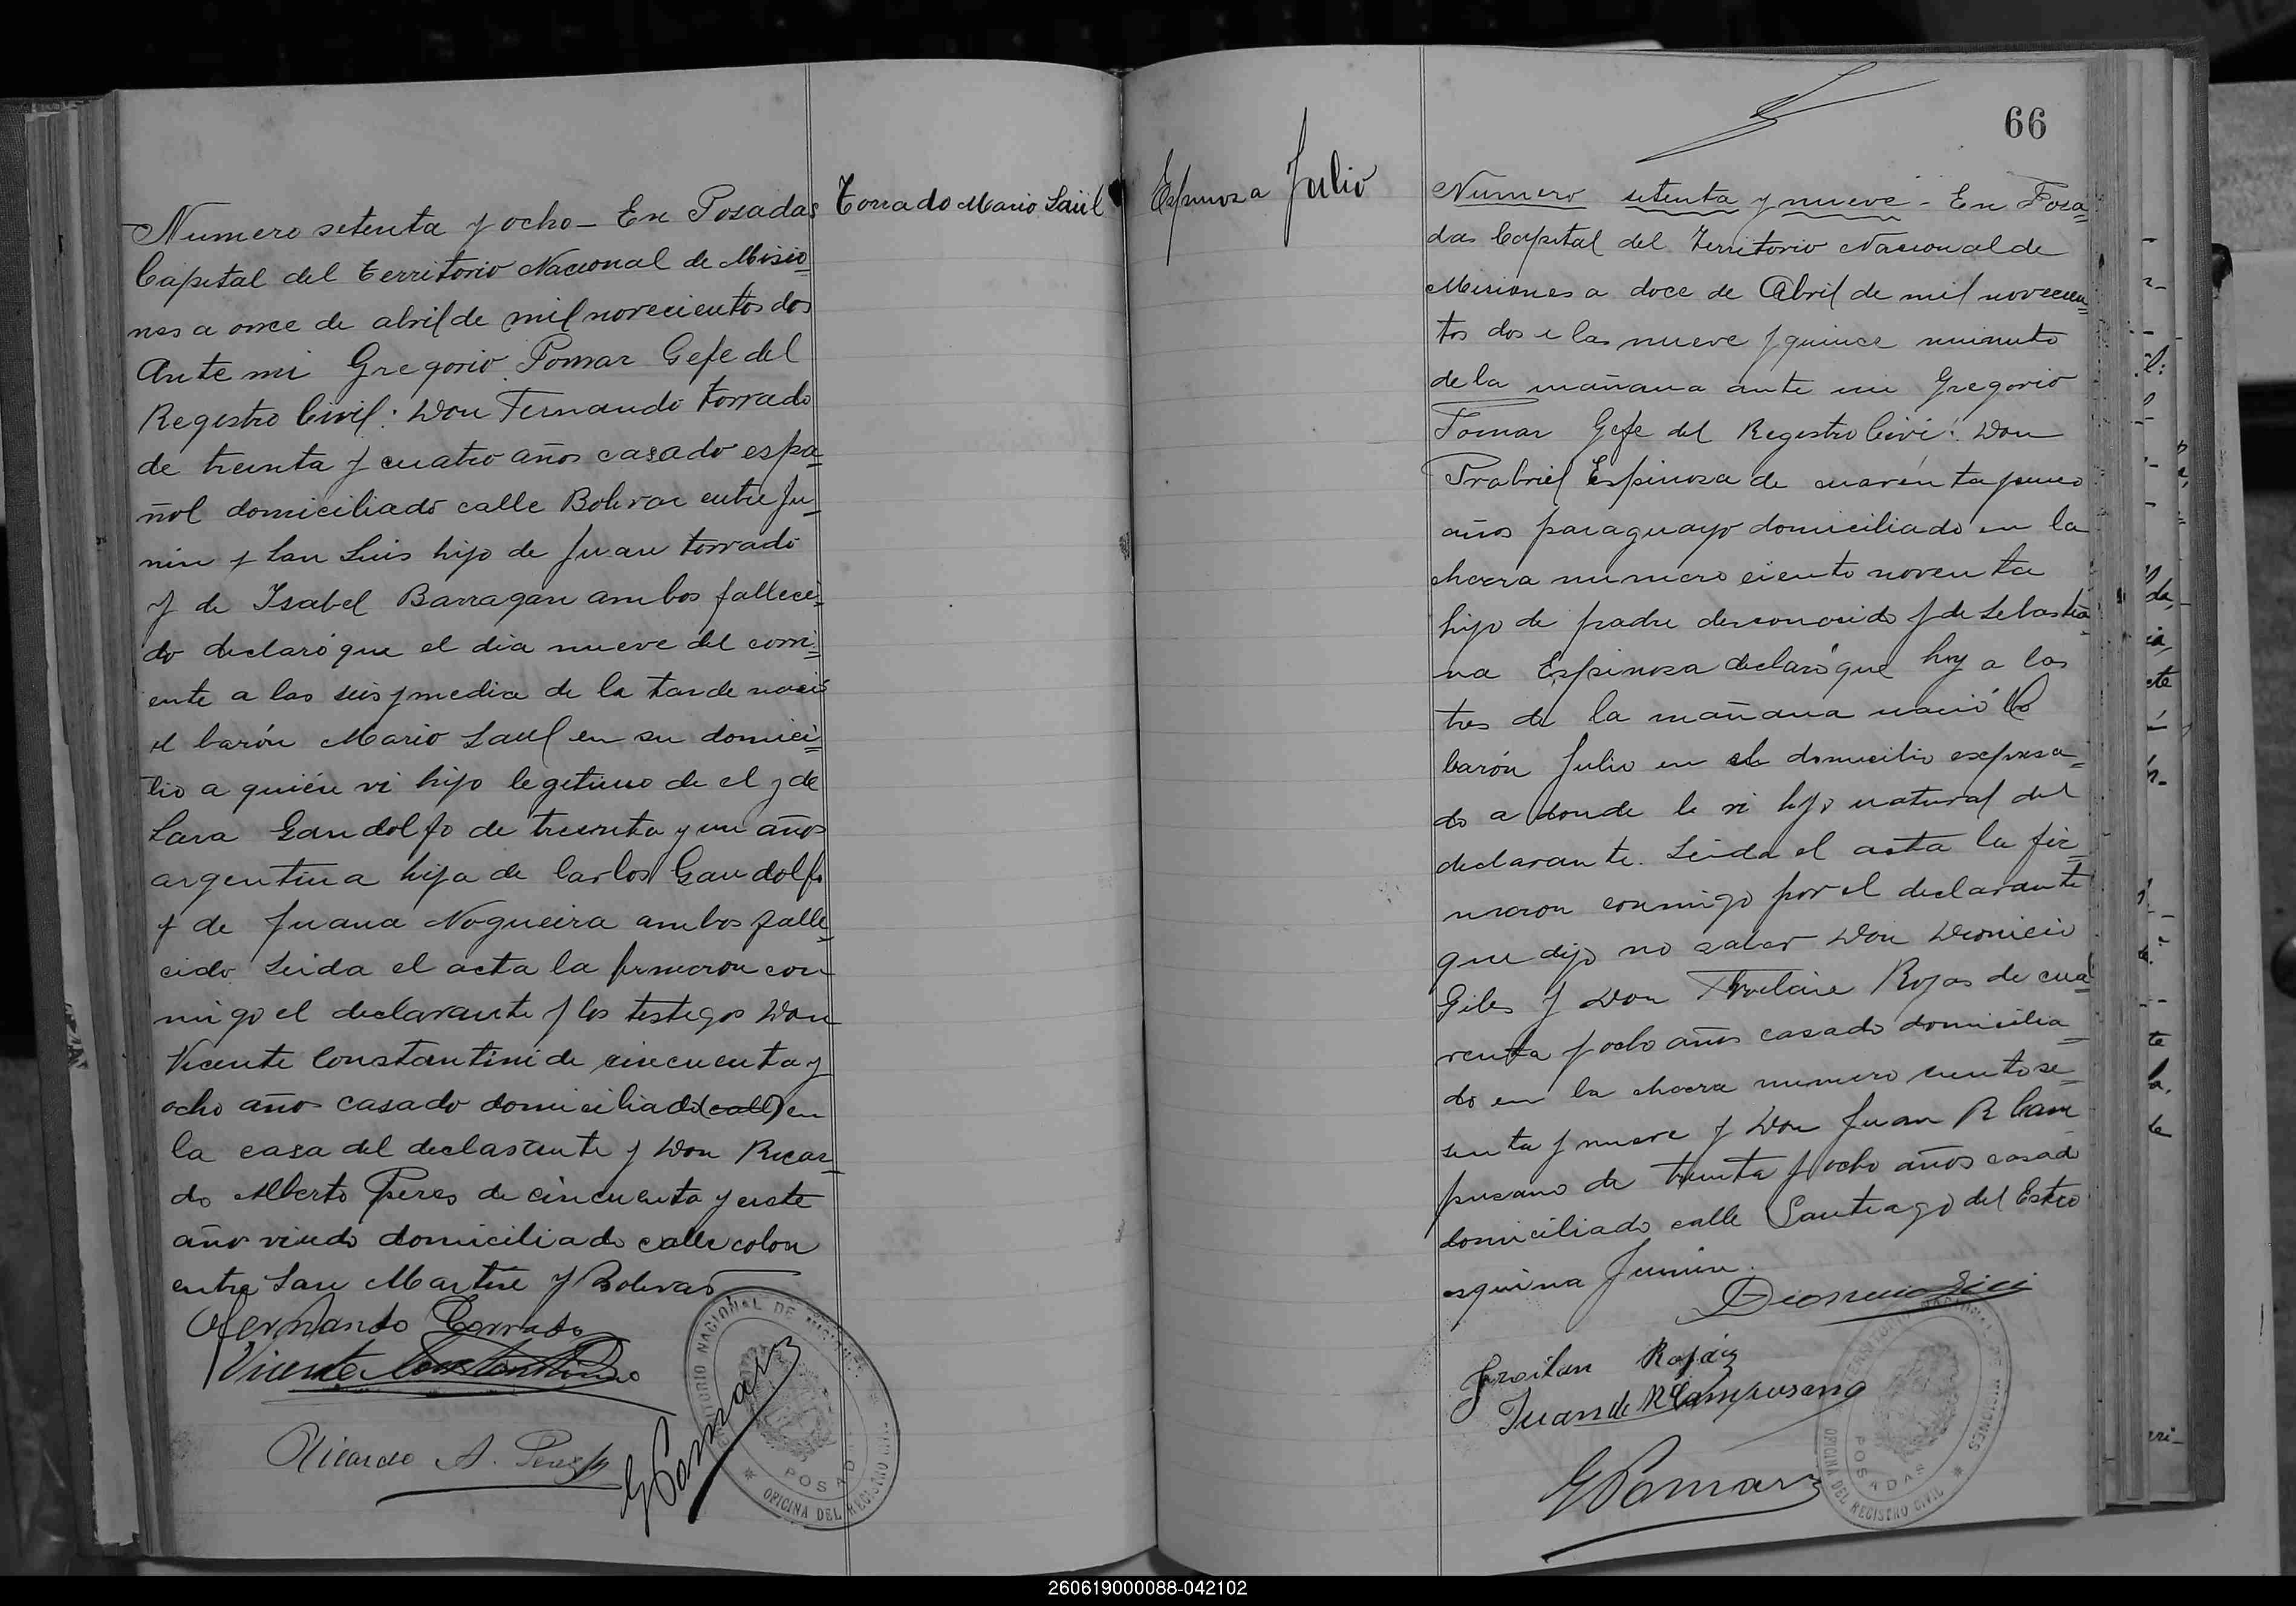 Torrado Mario Saúl
Numero setenta y ocho - En Posadas
Capital del territorio Nacional de Misio=
nes a once de abril de mil novecientos dos
Ante mi Gregorio Pomar Gefe del
Registro Civil: Don Fernando torrado
de treinta y cuatro años casado espa=
ñol domiciliado calle Bolivar entre Ju=
nin y San Luis hijo de Juan torrado
y de Isabel Barragan ambos falleci=
do declaró que el dia nueve del corri=
ente a las seis y media de la tarde nació
el barón Mario Saul en su domici=
lio a quién vi hijo legetimo de el y de
Sara Gandolfo de treinta y un años
argentina hija de Carlos Gandolfo
y de Juana Nogueira ambos falle=
cido Leida el acta la firmaron con
migo el declarante y los testegos Don
Vicente Constantini de cincuenta y
ocho año casado domiciliado (call) en
la casa del declarante y Don Ricar=
do Alberto Peres de cincuenta y
año viudo domiciliado calle colon
entre San Martin y Bolivar
Fernando Torrado
Vicente Constantino
Ricardo A. Perez
G Pomar
TERRITORIO NACIONAL DE MISIONES
POSADAS
OFICINA DEL REGISTRO CIVIL
66
Espinosa Julio
Numero setenta y nueve - En Posa=
das Capital del Territorio Nacional de
Misiones a doce de Abril de mil novecien=
tos dos a las nueve y quince minuto
de la mañana ante mi Gregorio
Pomar Gefe del Registro Civi: Don
Espinosa de cuarenta y uno
años paraguayo domiciliado en la
chacra numero ciento noventa
hijo de padre desconocido y de Sebastia
na Espinosa declaró que hoy a las
tres de la mañana nació
barón Julio en el domicilio expresa=
do a donde le vi hijo natural del
declarante. Leida el acta la fir=
maron conmigo por el declarante
que dijo no saber Don Dionicio
Giles y Don Rojas de cua=
renta y ocho años casado domicilia=
do en la chacra numero ciento se=
senta y nueve y Don Juan R Cam
pusano de treinta y ocho años casado
domiciliado calle Santiago del Estero
esquina Junin.
Froilan Rojas
Juan de R Campusano
G Pomar
TERRITORIO NACIONAL DE MISIONES
POSADAS
OFICINA DEL REGISTRO CIVIL
260619000088-042102